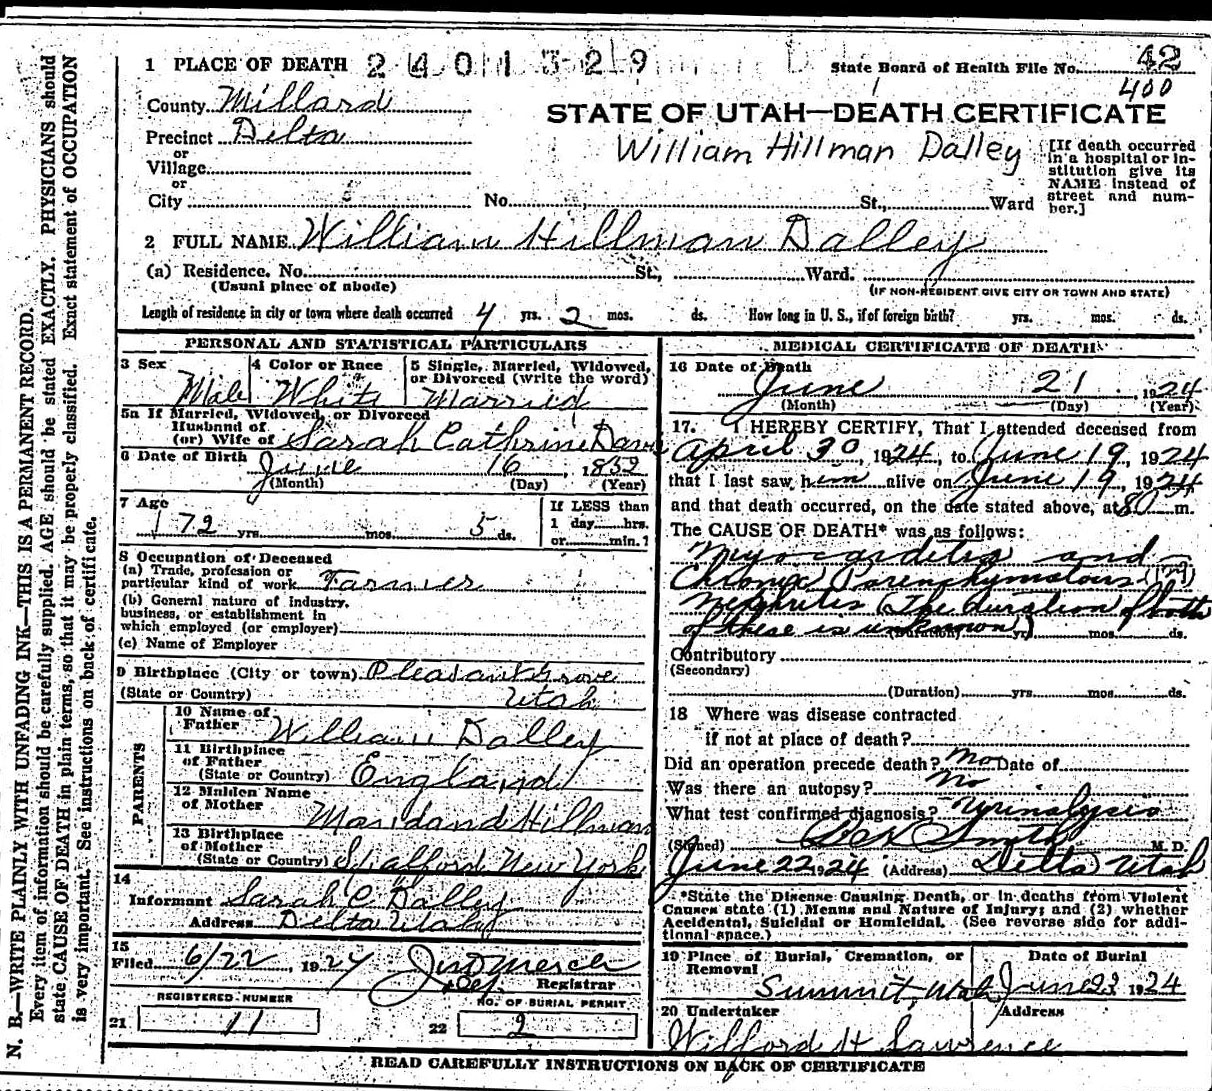 1 PLACE OF DEATH 2401329
State Board of Health File No. 42
400
County Millard
STATE OF UTAH—DEATH CERTIFICATE
Precinct Delta
William Hillman Dalley
[If death occurred in a hospital or institution give its NAME instead of street and number.]
or
Village
or
City No. St., Ward
2 FULL NAME William Hillman Dalley
(a) Residence. No. St., Ward.
(Usual place of abode) (IF NON-RESIDENT GIVE CITY OR TOWN AND STATE)
Length of residence in city or town where death occurred 4 yrs. 2 mos. ds. How long in U. S., if of foreign birth? yrs. mos. ds.
PERSONAL AND STATISTICAL PARTICULARS
3 Sex Male
4 Color or Race White
5 Single, Married, Widowed, or Divorced (write the word) Married
5a If Married, Widowed, or Divorced
Husband of
(or) Wife of Sarah Cathrine
6 Date of Birth June 16, 1852
(Month) (Day) (Year)
7 Age 72 yrs. mos. 5 ds.
If LESS than
1 day hrs.
or min.?
8 Occupation of Deceased
(a) Trade, profession or
particular kind of work Farmer
(b) General nature of industry,
business, or establishment in
which employed (or employer)
(c) Name of Employer
9 Birthplace (City or town) Pleasant Grove
(State or Country) Utah
PARENTS
10 Name of
Father William Dalley
11 Birthplace
of Father
(State or Country) England
12 Maiden Name
of Mother Hillman
13 Birthplace
of Mother
(State or Country) Spafford New York
14
Informant Sarah C Dalley
Address Delta Utah
15
Filed 6/22, 1924
Registrar
REGISTERED NUMBER
21 11
NO. OF BURIAL PERMIT
22 2
MEDICAL CERTIFICATE OF DEATH
16 Date of Death
June 21 1924
(Month) (Day) (Year)
17. I HEREBY CERTIFY, That I attended deceased from
April 30, 1924, to June 19, 1924
that I last saw him alive on June 19, 1924
and that death occurred, on the date stated above, at m.
The CAUSE OF DEATH* was as follows:
Myocarditis and
Chronic Parenchymatous
Nephritis (The duration of both
of these is unknown)
(Duration) yrs. mos. ds.
Contributory
(Secondary)
(Duration) yrs. mos. ds.
18 Where was disease contracted
if not at place of death?
Did an operation precede death? No Date of
Was there an autopsy? No
What test confirmed diagnosis? Urinalysis
(Signed) Smith M. D.
June 22 1924 (Address) Delta Utah
*State the Disease Causing Death, or in deaths from Violent
Causes state (1) Means and Nature of Injury; and (2) whether
Accidental, Suicidal or Homicidal. (See reverse side for addi-
tional space.)
19 Place of Burial, Cremation, or
Removal
Summit, Utah
Date of Burial
June 23 1924
20 Undertaker Address
Wilford H Lawrence
READ CAREFULLY INSTRUCTIONS ON BACK OF CERTIFICATE
N. B.—WRITE PLAINLY WITH UNFADING INK—THIS IS A PERMANENT RECORD.
Every item of information should be carefully supplied. AGE should be stated EXACTLY. PHYSICIANS should
state CAUSE OF DEATH in plain terms, so that it may be properly classified. Exact statement of OCCUPATION
is very important. See instructions on back of certificate.